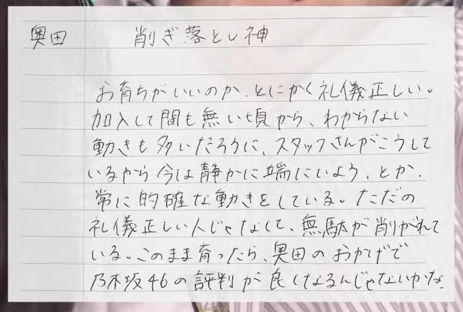 奥田 削ぎ落とし神
お育ちがいいのか、とにかく礼儀正しい。
加入して間も無い頃から、わからない
動きも多いだろうに、スタッフさんがこうして
いるから今は静かに端にいよう、とか、
常に的確な動きをしている。ただの
礼儀正しい人じゃなくて、無駄が削がれて
いる。このまま育ったら、奥田のおかげで
乃木坂46の評判が良くなるんじゃないかな。